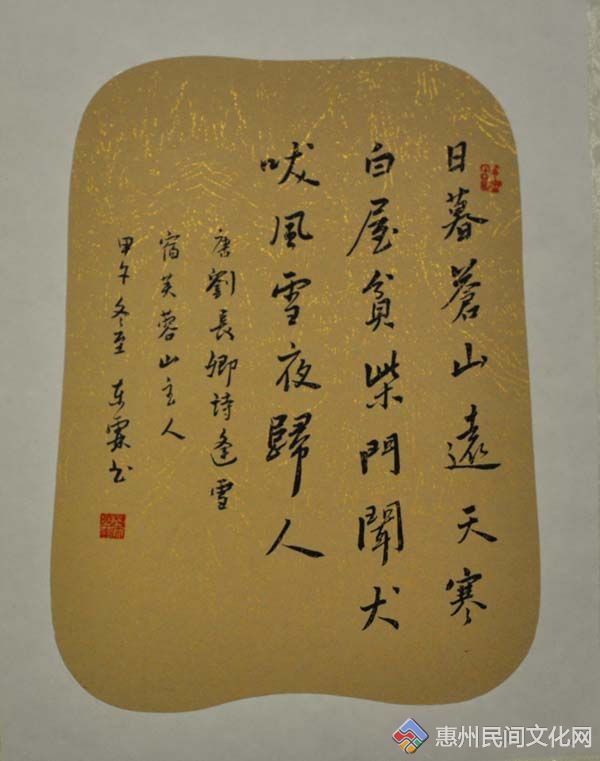 日暮蒼山遠天寒
白屋貧柴門聞犬
吠風雪夜歸人
唐劉長卿詩逢雪
宿芙蓉山主人
甲午冬至東霖书
惠州民间文化网